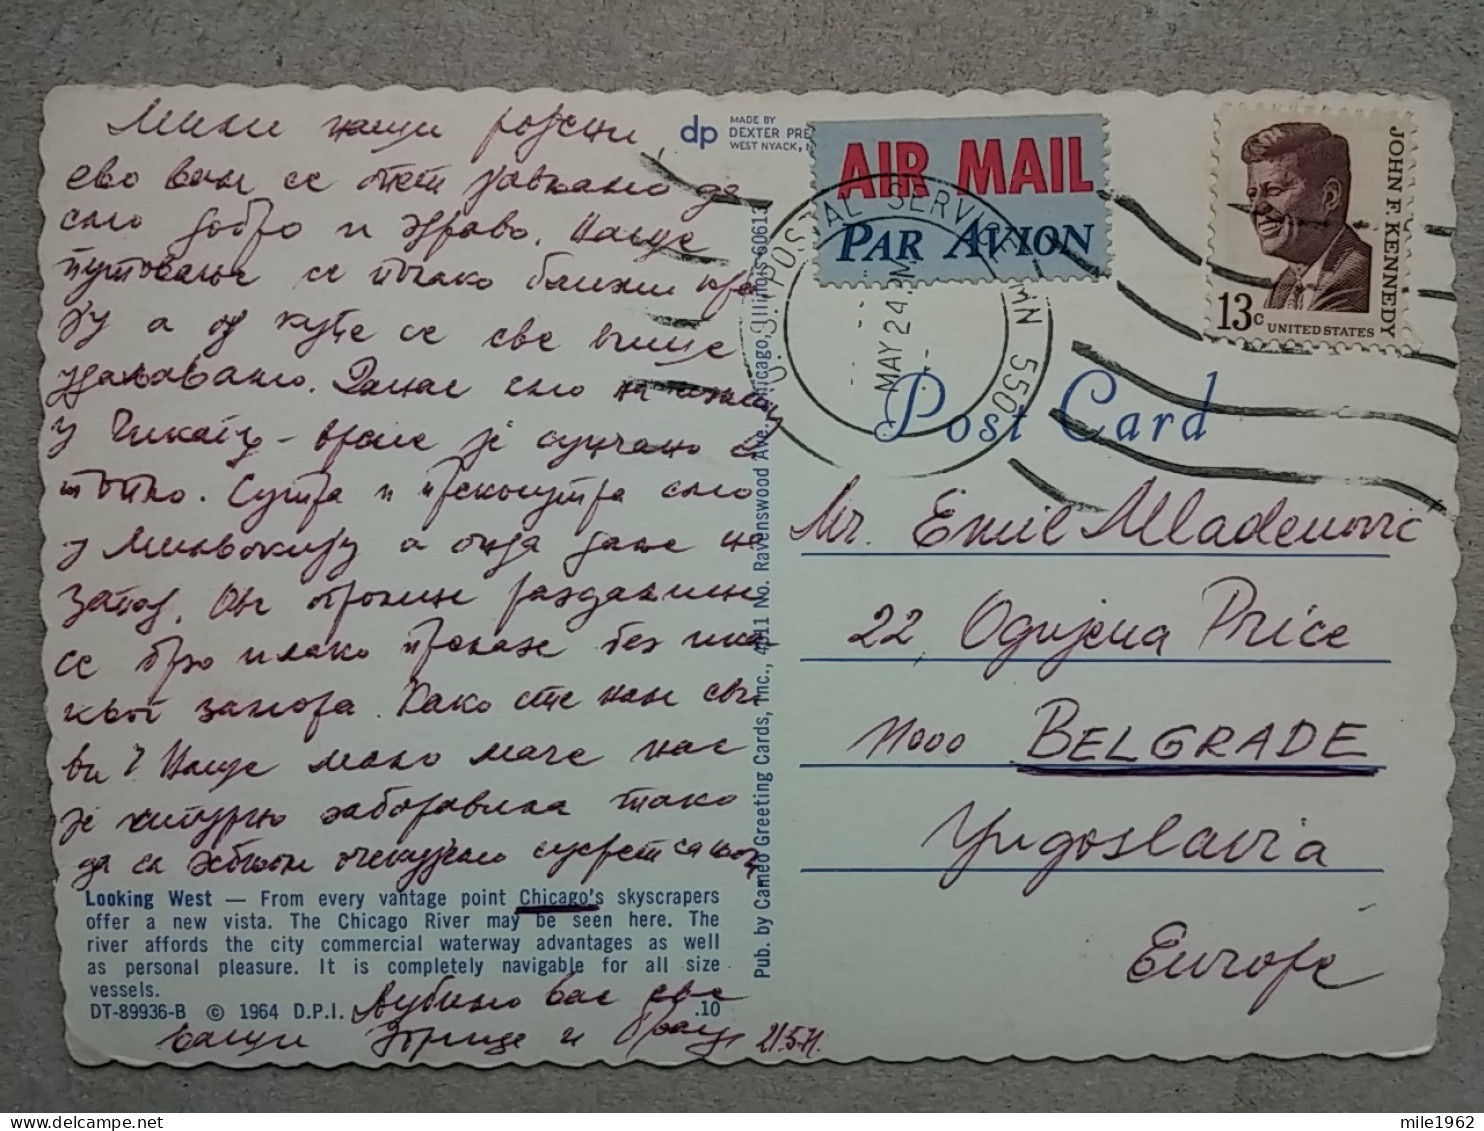 Мили наши
ево вам се опет јављамо да
смо добро и здраво. Наше
путовање се полако ближи кра
ју а од куће се све више
удаљавамо. Данас смо на
у Чикагу - време је сунчано и
топло. Сутра и прекосутра смо
у а онда даље на
запад. Ове огромне раздаљине
се брзо и лако прелазе без ика
квог замора. Како сте нам сви
ви? Наше мало маче нас
је сигурно заборавила тако
да са очекујемо сусрет са њом
Љубимо вас све
ваши и 21.5.71.
dp MADE BY
DEXTER PRE
WEST NYACK, N
AIR MAIL
PAR AVION
U.S. POSTAL SERVICE MN 550
MAY 24 PM
JOHN F. KENNEDY
13c UNITED STATES
Post Card
Mr. Emil Mladenovic
22, Ognjena Price
11000 BELGRADE
Yugoslavia
Europe
Pub. by Cameo Greeting Cards, Inc., 4511 No. Ravenswood Ave., Chicago, Illinois 60613
Looking West — From every vantage point Chicago's skyscrapers
offer a new vista. The Chicago River may be seen here. The
river affords the city commercial waterway advantages as well
as personal pleasure. It is completely navigable for all size
vessels.
DT-89936-B © 1964 D.P.I. .10
mile1962